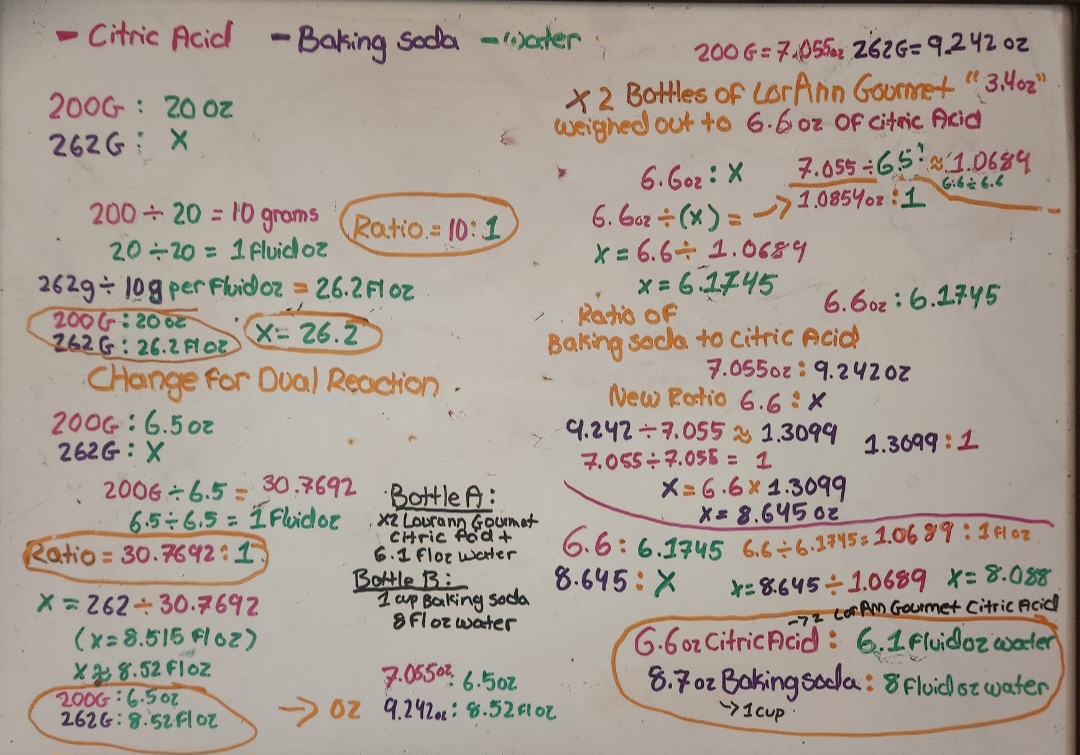 - Citric Acid - Baking Soda - Water
200G : 20 oz
262G : X
200 ÷ 20 = 10 grams
20 ÷ 20 = 1 fluid oz
Ratio = 10:1
262g ÷ 10g per Fluid oz = 26.2 Fl oz
200G : 20 oz
262G : 26.2 Fl oz
X = 26.2
Change for Dual Reaction
200G : 6.5 oz
262G : X
200G ÷ 6.5 = 30.7692
6.5 ÷ 6.5 = 1 Fluid oz
Ratio = 30.7692 : 1
X = 262 ÷ 30.7692
(x = 8.515 fl oz)
X ≈ 8.52 Fl oz
200G : 6.5 oz
262G : 8.52 Fl oz
→ oz
7.055oz : 6.5oz
9.242oz : 8.52 Fl oz
Bottle A:
x2 Lourann Gourmet
Citric Acid +
6.1 Fl oz water
Bottle B:
1 cup Baking soda
8 Fl oz water
200G = 7.055oz 262G = 9.242 oz
X 2 Bottles of LorAnn Gourmet "3.4oz"
weighed out to 6.6 oz of citric Acid
6.6oz : X
7.055 ÷ 6.5 ≈ 1.0689
6.6 ÷ 6.6
6.6oz ÷ (x) = → 1.0854oz : 1
X = 6.6 ÷ 1.0689
X = 6.1745
6.6oz : 6.1745
Ratio of
Baking soda to Citric Acid
7.055oz : 9.242oz
New Ratio 6.6 : X
9.242 ÷ 7.055 ≈ 1.3099
7.055 ÷ 7.055 = 1
1.3099 : 1
X = 6.6 x 1.3099
X = 8.645 oz
6.6 : 6.1745 6.6 ÷ 6.1745 = 1.0689 : 1 Fl oz
8.645 : X X = 8.645 ÷ 1.0689 X = 8.088
→ 2 LorAnn Gourmet Citric Acid
6.6oz Citric Acid : 6.1 Fluid oz water
8.7oz Baking soda : 8 Fluid oz water
→ 1 cup